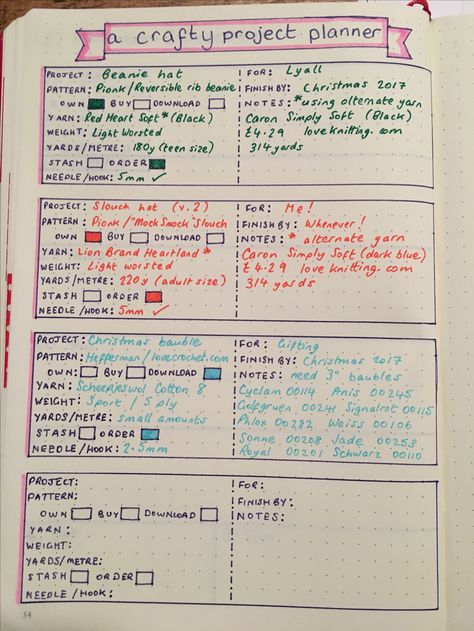 a crafty project planner
PROJECT: Beanie hat
PATTERN: Pionk/Reversible rib beanie
OWN BUY DOWNLOAD
YARN: Red Heart Soft* (Black)
WEIGHT: Light Worsted
YARDS/METRE: 180y (teen size)
STASH ORDER
NEEDLE/HOOK: 5mm ✓
FOR: Lyall
FINISH BY: Christmas 2017
NOTES: *using alternate yarn
Caron Simply Soft (Black)
£4.29 loveknitting.com
314 yards
PROJECT: Slouch hat (v.2)
PATTERN: Pionk/"MockSmock" slouch
OWN BUY DOWNLOAD
YARN: Lion Brand Heartland*
WEIGHT: Light worsted
YARDS/METRE: 220y (adult size)
STASH ORDER
NEEDLE/HOOK: 5mm ✓
FOR: Me!
FINISH BY: Whenever!
NOTES: * alternate yarn
Caron Simply Soft (dark blue)
£4.29 love knitting.com
314 yards
PROJECT: Christmas bauble
PATTERN: Hefferman/lovecrochet.com
OWN: BUY DOWNLOAD
YARN: Scheepjeswol Cotton 8
WEIGHT: Sport / 5 ply
YARDS/METRE: small amounts
STASH ORDER
NEEDLE/HOOK: 2.5mm
FOR: Gifting
FINISH BY: Christmas 2017
NOTES: need 3" baubles
Cyclam 00114 Anis 00245
Golfgruen 00241 Signalrot 00115
Phlox 00282 Weiss 00106
Sonne 00208 Jade 00253
Royal 00201 Schwarz 00110
PROJECT:
PATTERN:
OWN BUY DOWNLOAD
YARN:
WEIGHT:
YARDS/METRE:
STASH ORDER
NEEDLE/HOOK:
FOR:
FINISH BY:
NOTES:
54